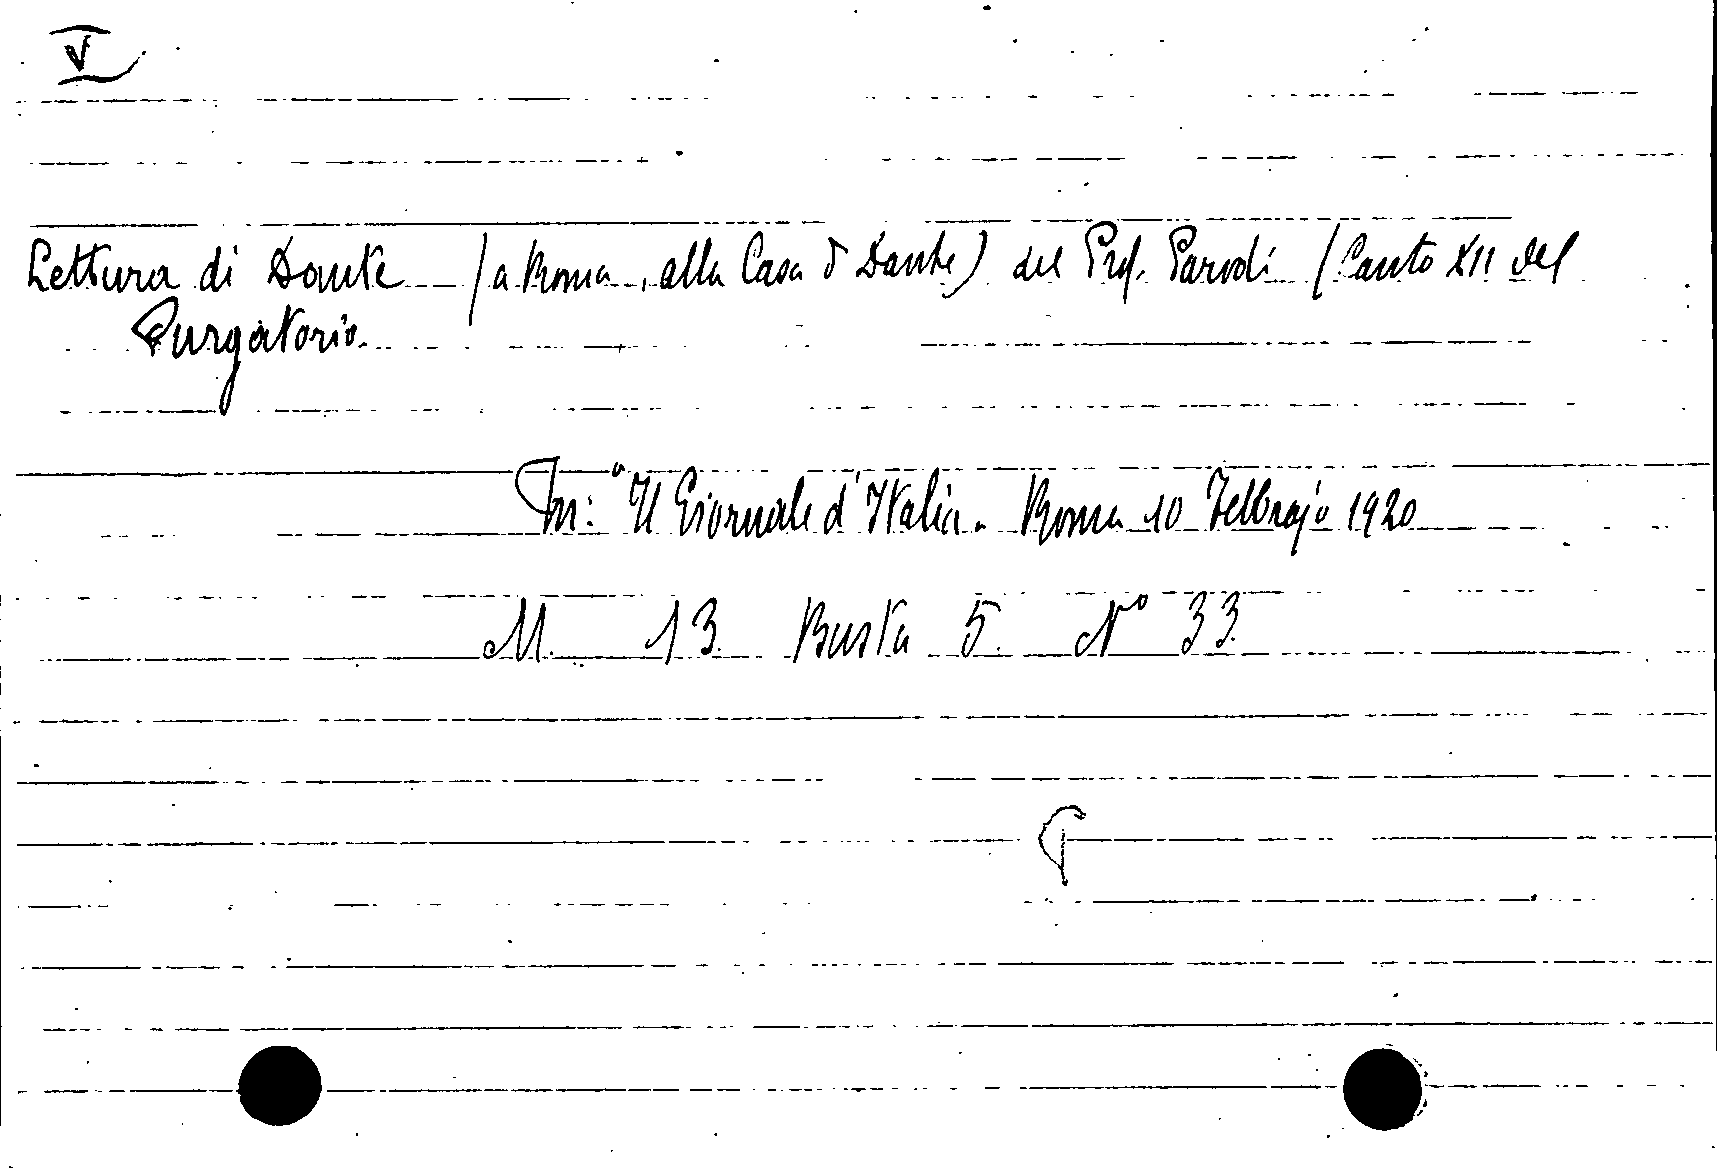 V
Lettura di Dante (a Roma, alla Casa d Dante) del Prof. Parodi (Canto XII del
Purgatorio.
In: "Il Giornale d'Italia. Roma 10 Febbrajo 1920
M. 13. Busta 5. N° 33.